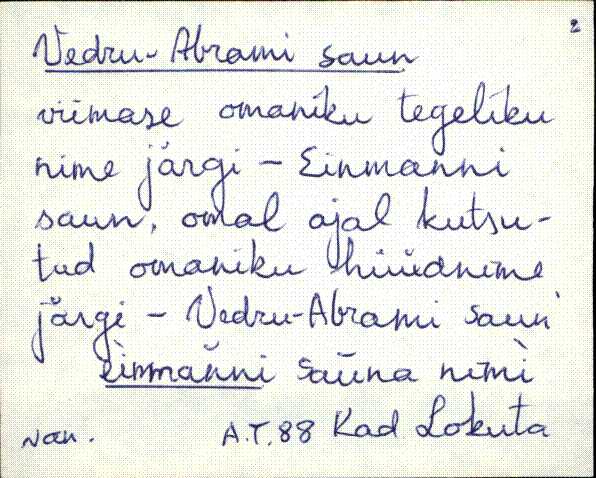 2
Vedru-Abrami saun
viimase omaniku tegeliku
nime järgi - Einmanni
saun, omal ajal kutsu-
tud omaniku hüüdnime
järgi - Vedru-Abrami saun
einmanni sauna nimi
A.T. 88 Kad Lokuta